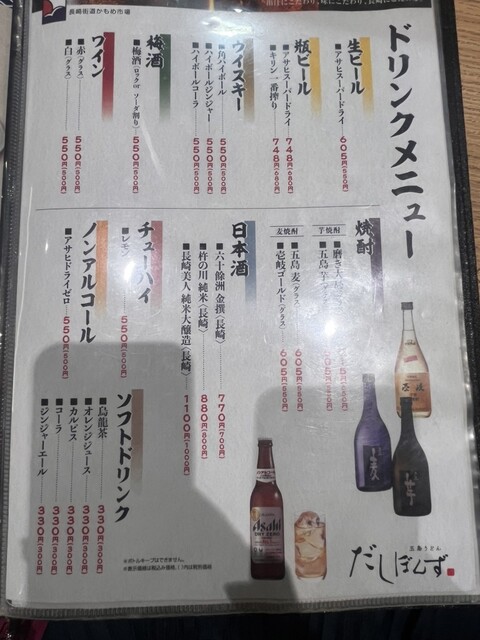 長崎街道かもめ市場
ドリンクメニュー
生ビール
■アサヒスーパードライ 605円(550円)
瓶ビール
■アサヒスーパードライ 748円(680円)
■キリン一番搾り 748円(680円)
ウイスキー
■角ハイボール 550円(500円)
■ハイボールジンジャー 550円(500円)
■ハイボールコーラ 550円(500円)
梅酒
■梅酒(ロックor ソーダ割り) 550円(500円)
ワイン
■赤(グラス) 550円(500円)
■白(グラス) 550円(500円)
焼酎
芋焼酎
■五島芋
麦焼酎
■五島 麦(グラス) 605円(550円)
■壱岐ゴールド(グラス) 605円(550円)
日本酒
■六十餘洲 金撰〈長崎〉 770円(700円)
■杵の川 純米〈長崎〉 880円(800円)
■長崎美人 純米大醸造〈長崎〉 1100円(1000円)
チューハイ
■レモン 550円(500円)
ノンアルコール
■アサヒドライゼロ 550円(500円)
ソフトドリンク
■烏龍茶 330円(300円)
■オレンジジュース 330円(300円)
■カルピス 330円(300円)
■コーラ 330円(300円)
■ジンジャーエール 330円(300円)
※ボトルキープはできません。
※表示価格は税込み価格、( )内は税別価格
Asahi
壱岐
五島うどん
だしぼんず